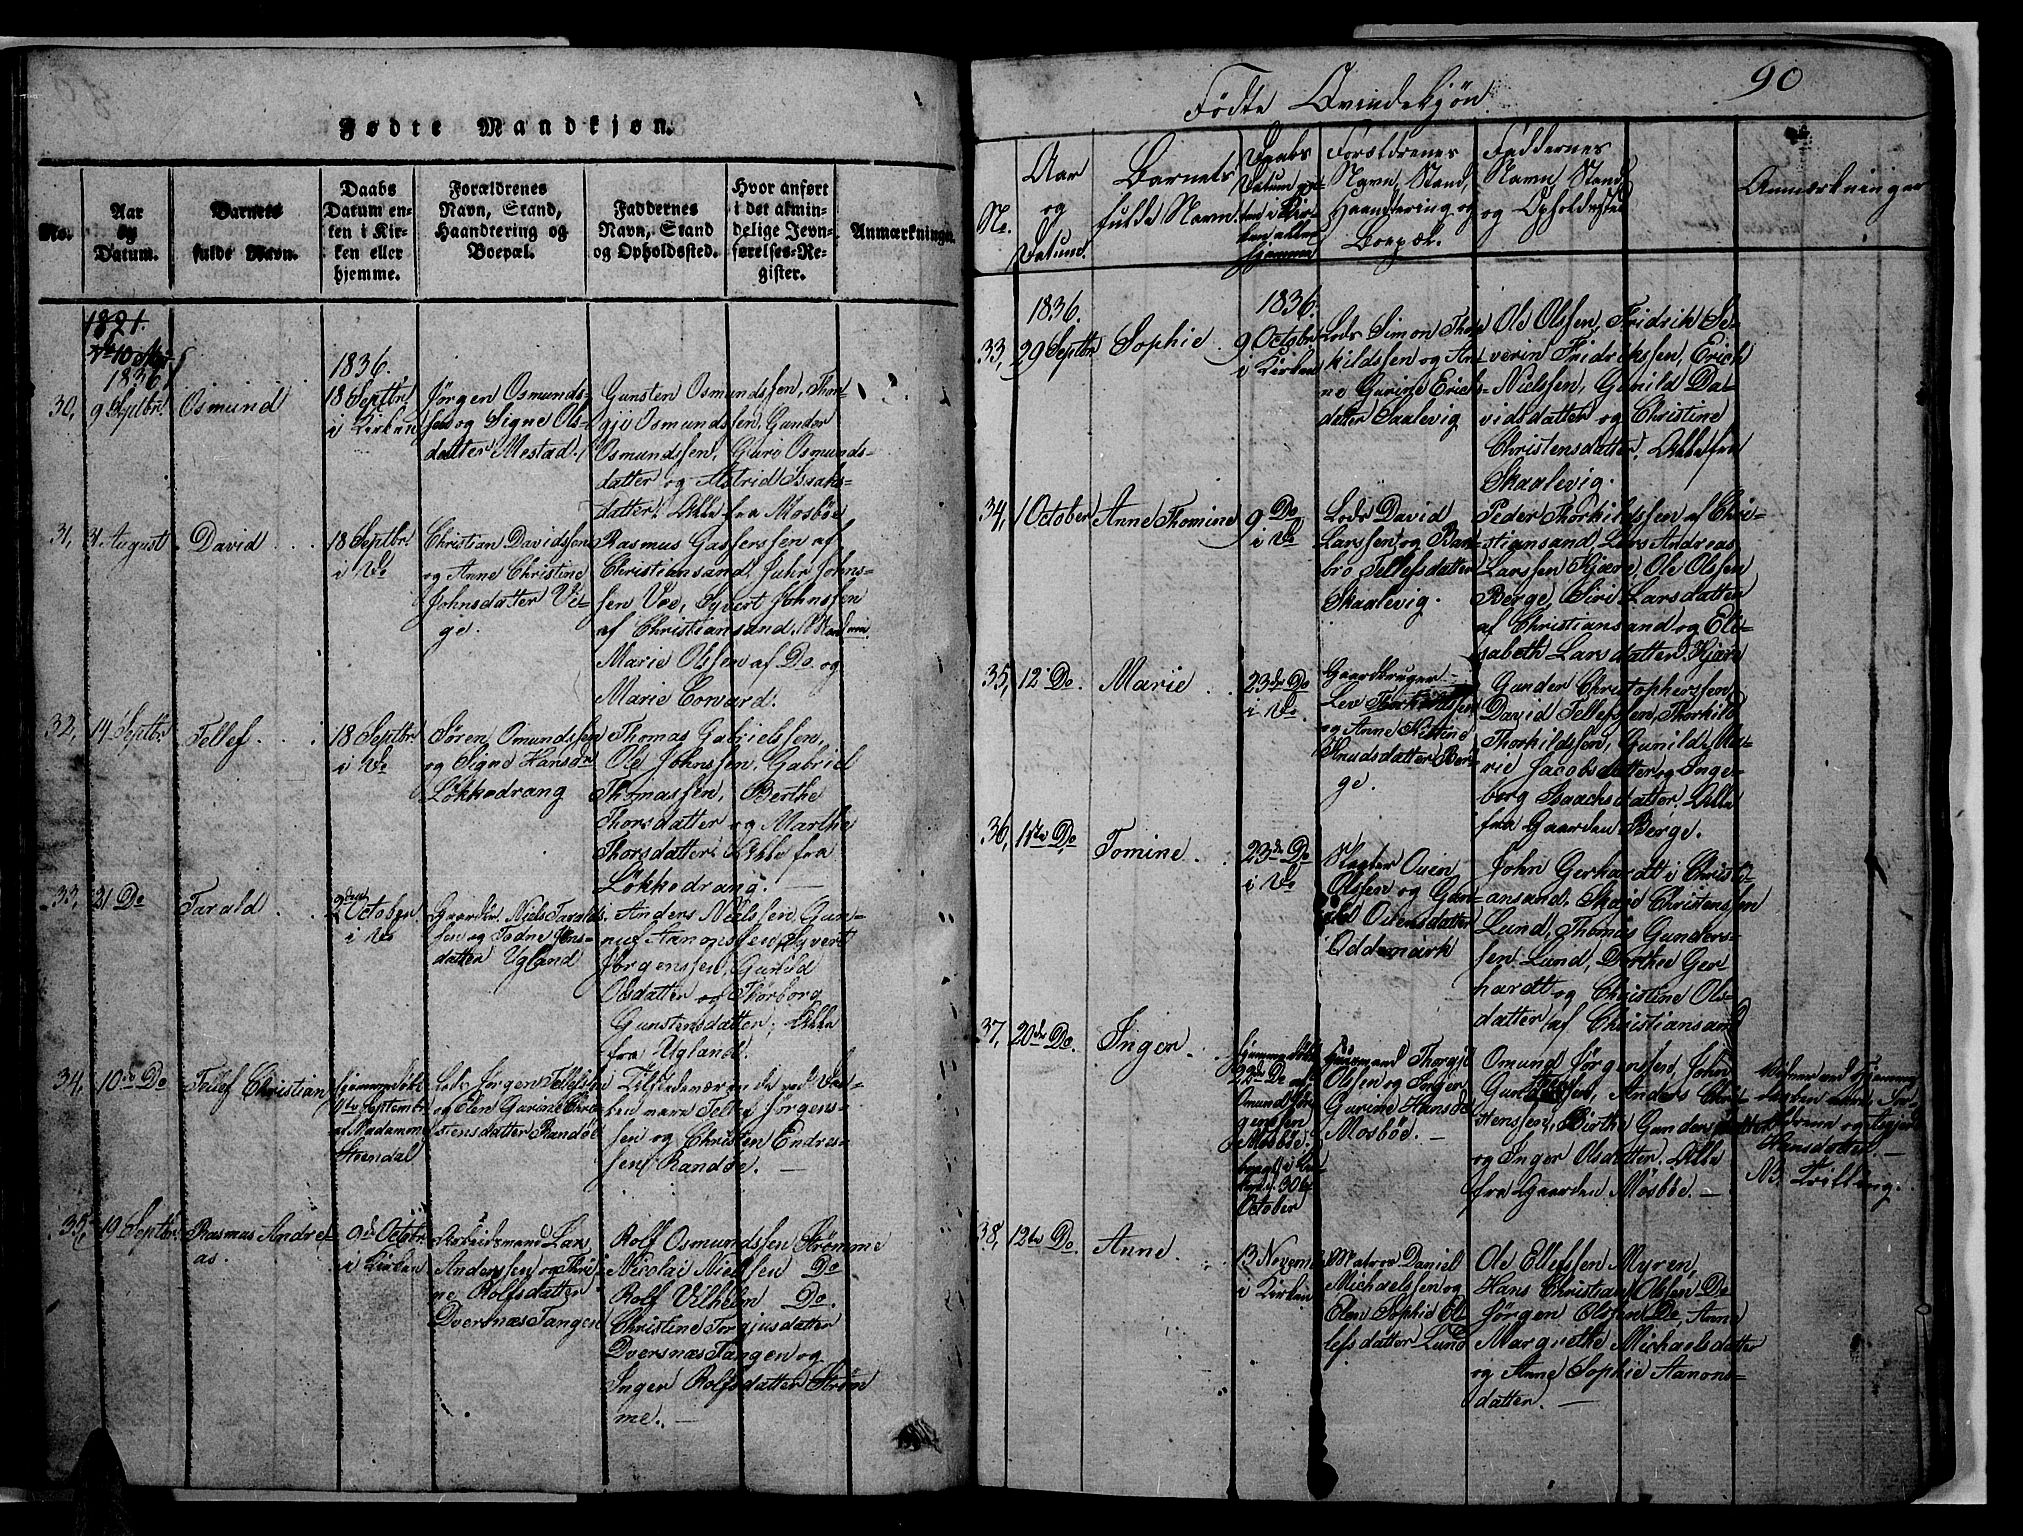 Fødte Mandkjøn.
No.
Aar
og
Datum.
Barnets
fulde Navn.
Daabs
Datum en-
ten i Kir-
ken eller
hjemme.
Forældrenes
Navn, Stand,
Haandtering og
Boepæl.
Faddernes
Navn, Stand
og Opholdssted.
Hvor anført
i det almin-
delige Jevn-
førelses-Re-
gister.
Anmærkninger.
1821.
1836
30,
9 Septbr
Osmund
1836.
18 Septbr
i Kirken
Jørgen Osmunds-
sen og Signe Ols-
datter Mestad.
Gunsten Osmundssen, Thor
gju Osmundssen, Gunder
Osmundssen, Guro Osmunds-
datter og Astrid Isaaks-
datter. Alle fra Mosbøe
31,
31 August
David
18 Septbr
i Do
Christian Davidssen
og Anne Christine
Johnsdatter Vi-
ge.
Rasmus Gasserssen af
Christiansand, Juhr Johns-
sen Voe, Syvert Johnssen
af Christiansand,
Marie Olssen af Do. og
Marie Corvard.
32,
14 Septbr
Tellef
18 Septbr
i Do
Søren Omundssen
og Signe Hansdr
Løkkedrang
Thomas Gabrielssen,
Ole Johnssen, Gabriel
Thomassen, Berthe
Thorsdatter og Marthe
Thorsdatter Alle fra
Løkkedrang. —
33,
21 Do
Tarald
2den October
i Do
Gaardbr. Niels Taralds
sen og Todne Jens-
datter Ugland
Anders Nielssen, Gun-
nuf Aanonssen, Syvert
Jørgenssen, Gunild
Olsdatter og Thorborg
Gunstensdatter, Alle
fra Ugland.
34,
10de Do
Tellef Christian
hjemmedøbt
September
af Madamme
Steendal
Lods Jørgen Tellefssen
og Elen Gurine Chri-
stensdatter Randøe
Tilstedeværende ved Daa-
ben vare Tellef Jørgens-
sen og Christen Endres-
sen Randøe. —
35,
19 Septbr
Rasmus Andre-
as.
9de Octobr
i Kirken
Arbeidsmand Lars
Anderssen og Thri-
ne Rolfsdatter
Dversnæs Tangen
Rolf Osmundssen Strømme
Nicolai Nielssen Do
Rolf Vilhelm Do.
Christine Torgjusdatter
Dversnæs Tangen og
Inger Rolfsdatter Strøm
me. —
Fødte Qvindekjøn
90
No.
Aar
og
Datum.
Barnets
fulde Navn.
Daabs
Datum en-
ten i Kir-
ken eller
hjemme
Forældrenes
Navn, Stand,
Haandtering og
Boepæl.
Faddernes
Navn, Stand
og Opholdssted
Anmærkninger
1836.
33,
29 Septbr
Sophie
1836.
9 Octobr
i Kirken
Lods Simon Thor
kildssen og An-
ne Gurine Erichs
datter Skaalevig
Ole Olssen, Fridrik Se-
verin Fridrikssen, Erich
Nielssen, Gunild Da-
vidsdatter og Christine
Christensdatter. Alle fra
Skaalevig.
34,
1 October
Anne Thomine
9 Do
i Do
Lods David
Larssen og Bar-
bro Tellefsdatter
Skaalevig.
Peder Thorkildssen af Chri-
stiansand, Lars Andreas
Larssen Kjære, Ole Olssen
Berge, Siri Larsdatter
af Christiansand og Eli-
sabeth Larsdatter Kjære
35,
12 Do.
Marie
23de Do
i Do.
Gaardbruger
Lev Thorkildssen
og Anne Kistine
Knudsdatter Ber-
ge.
Gunder Christopherssen,
David Tellefssen, Thorkild
Thorkildssen, Gunild Ma-
rie Jacobsdatter og Inge-
borg Isaachsdatter, Alle
fra Gaarden Berge.
36,
11te Do
Tomine
23de Do
i Do
Slagter Ouen
Olssen og Gun-
ild Ouensdatter
Oddemark
John Gerhardt i Christi-
ansand, Skaje Christenssen
Lund, Thomas Gunders-
sen Lund, Dorthe Ger
hardt og Christine Ols-
datter af Christiansand
37,
20de Do.
Inger
hjemmedøbt
22de Do af
Omund Jør-
genssen
Mosbøe.
bragt i Kir-
ken d. 30te
October
Huusmand Thorgju
Olssen og Inger
Gurine Hansdr
Mosbøe. —
Omund Jørgenssen, John
Anders Chri-
stenssen, Birthe Gunders
og Inger Olsdatter. Alle
fra Gaarden Mosbøe. —
Vidner ved Hjemme
daaben vare For-
ældrene og
Hansdatter. —
NB. Tvilling.
38,
12te Do.
Anne
13 Novem
i Kirken
Matros Daniel
Michaelssen og
Elen Sophie El-
lefsdatter Lund
Ole Ellefssen Myren,
Hans Christian Olssen Do
Jørgen Olssen Do, Anne
Margrethe Michaelsdatter
og Anne Sophie Aanons-
datter. —